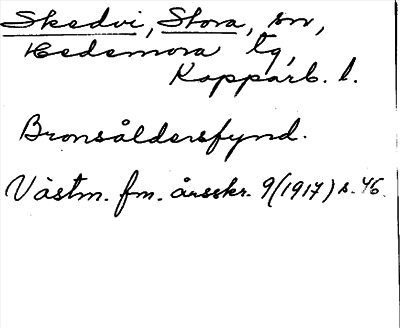 Skedvi, Stora, sn,
Hedemora tg,
Kopparb. l.
Bronsåldersfynd.
Västm. fm. årsskr. 9(1917) s. 46.